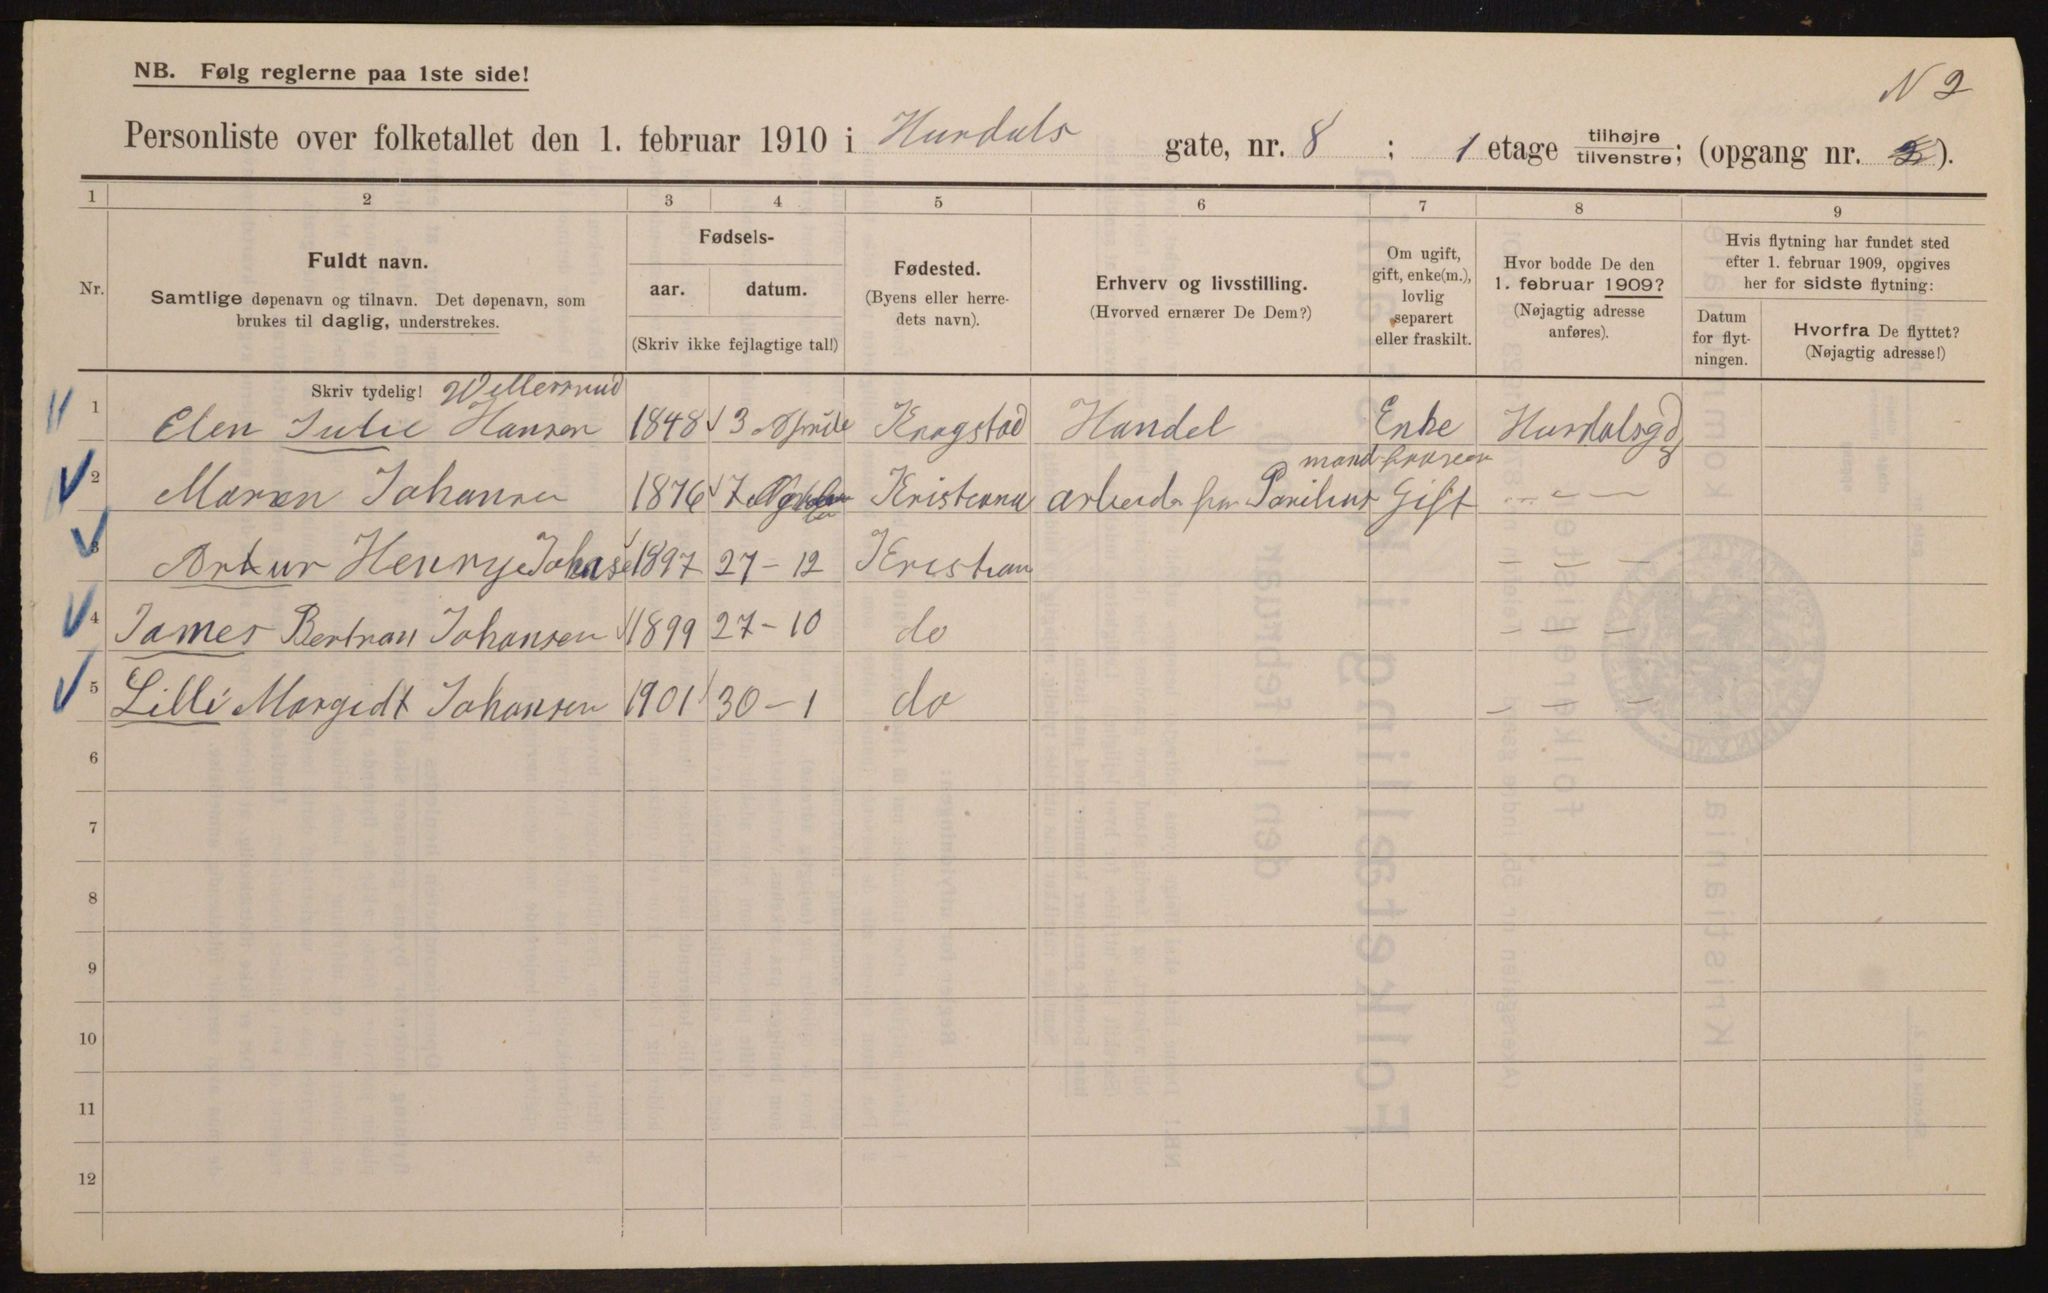 N 2
NB. Følg reglerne paa 1ste side!
Personliste over folketallet den 1. februar 1910 i Hurdals gate, nr. 8 ; 1 etage tilhøjre/tilvenstre; (opgang nr. ).
1 2 3 4 5 6 7 8 9
Nr.
Fuldt navn.
Samtlige døpenavn og tilnavn. Det døpenavn, som
brukes til daglig, understrekes.
Fødsels-
aar. datum.
(Skriv ikke fejlagtige tal!)
Fødested.
(Byens eller herre-
dets navn).
Erhverv og livsstilling.
(Hvorved ernærer De Dem?)
Om ugift,
gift, enke(m.),
lovlig
separert
eller fraskilt.
Hvor bodde De den
1. februar 1909?
(Nøjagtig adresse
anføres).
Hvis flytning har fundet sted
efter 1. februar 1909, opgives
her for sidste flytning:
Datum
for flyt-
ningen.
Hvorfra De flyttet?
(Nøjagtig adresse!)
Skriv tydelig! Willersrud
1 Elen Julie Hansen 1848 3 Krogstad Handel Enke Hurdalsgd
mand
2 Maren Johansen 1876 7 Kristiania Gift — — —
3 Artur Henry Johanse 1897 27 – 12 Kristian — — —
4 James Bertran Johansen 1899 27 – 10 do — — —
5 Lilli Margidt Johansen 1901 30 – 1 do — — —
6
7
8
9
10
11
12